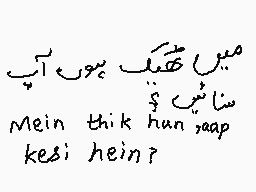 میں ٹھیک ہوں آپ
سنائیں ؟
Mein thik hun ,aap
kesi hein?